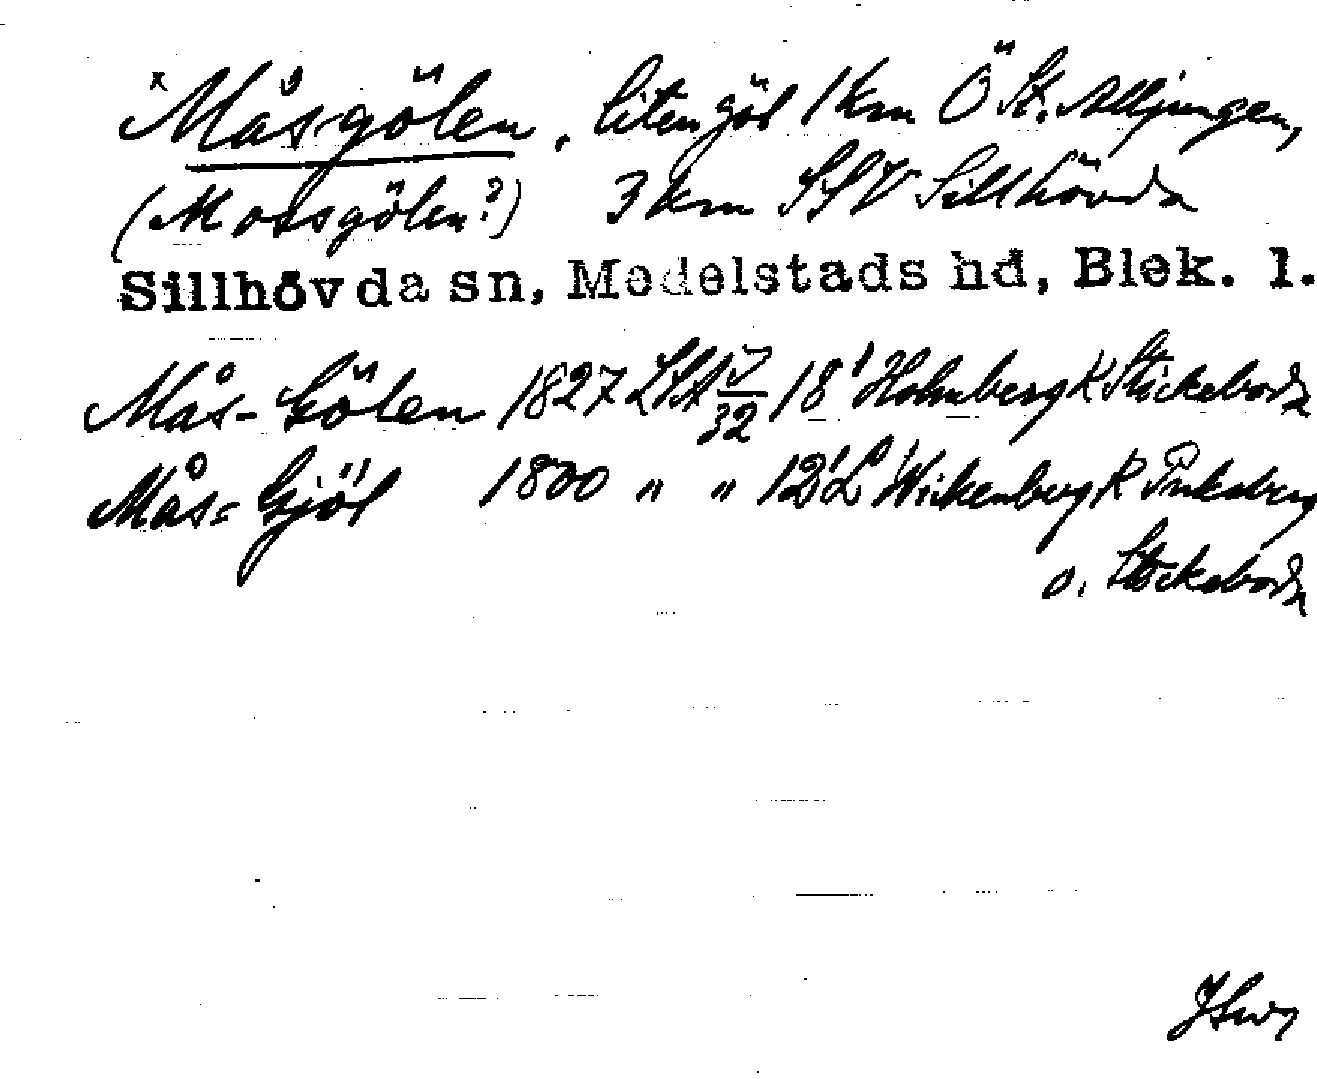 x Måsgölen, liten göl 1 km Ö St. Alljungen,
(Mossgölen?) 3 km SSV Sillhövda
Sillhövda sn, Medelstads hd, Blek. l.
Mås-Gölen 1827 LSA J/32 18' Holmberg K Stickeboda
Mås-Gjöl 1800 " " 12' Wickenberg K
o. Stickeboda